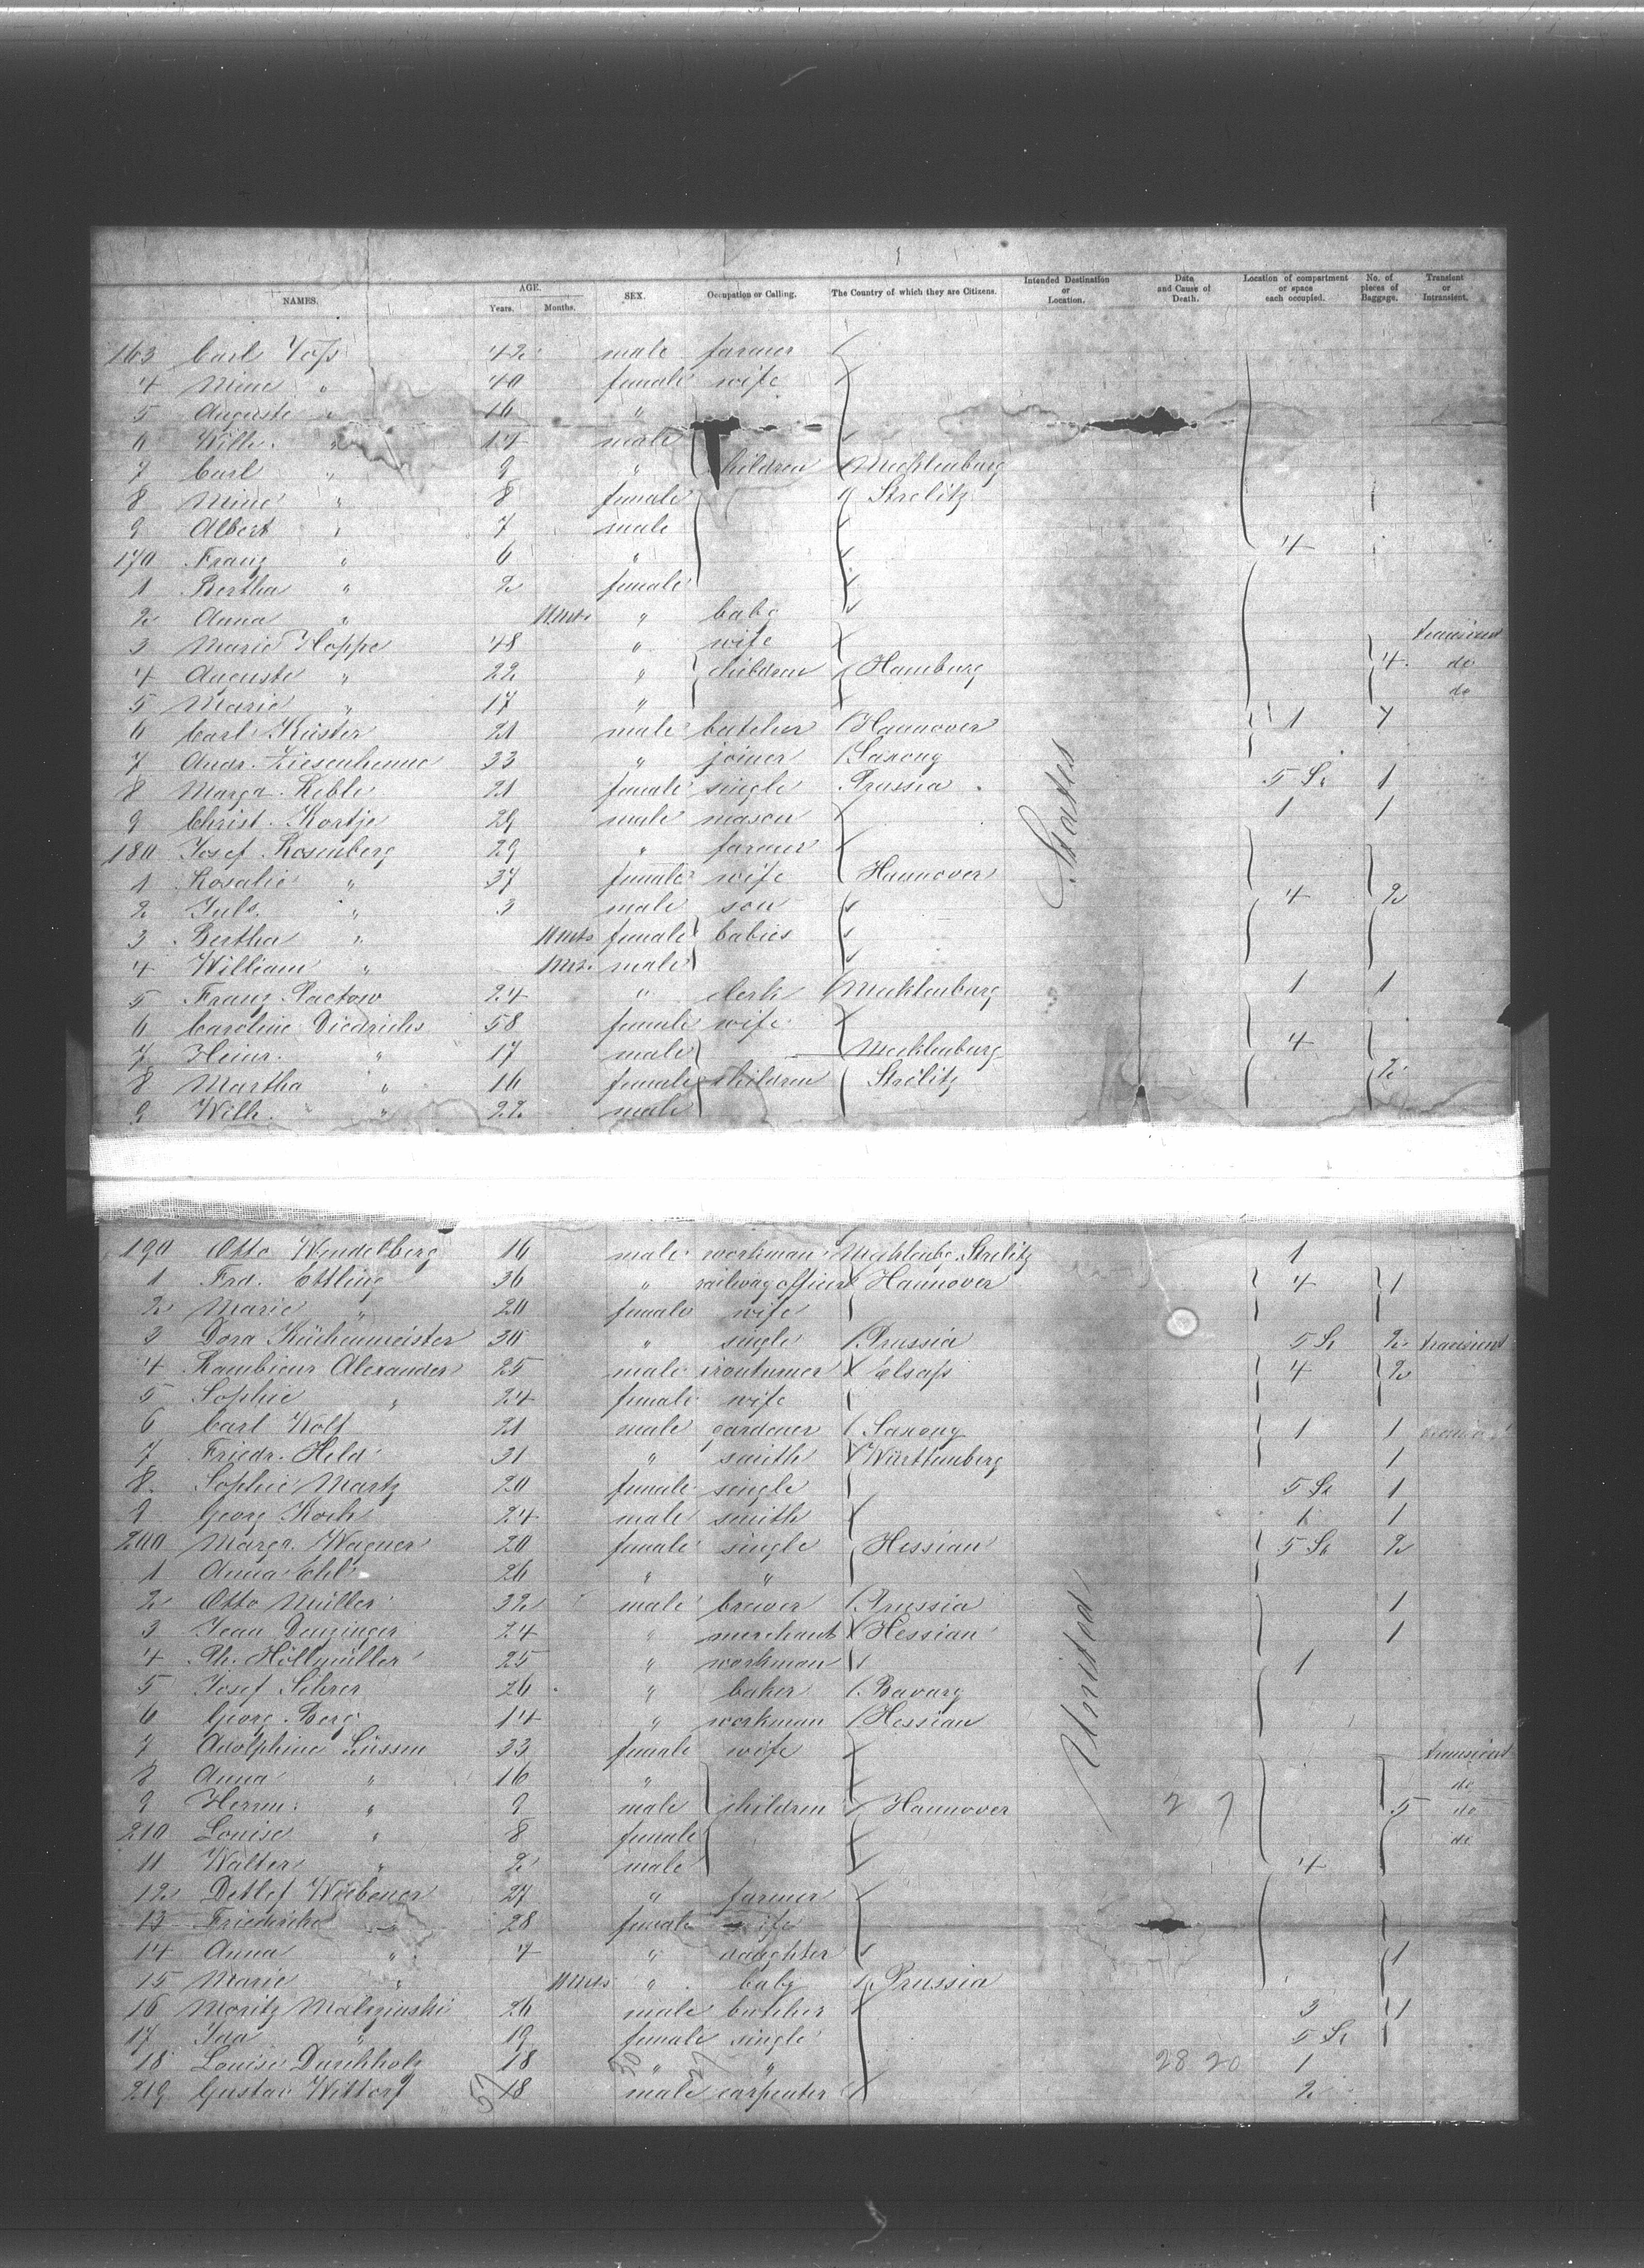 NAMES. AGE. Years. Months. SEX. Occupation or Calling. The Country of which they are Citizens. Intended Destination or Location. Date and Cause of Death. Location of compartment or space each occupied. No. of pieces of Baggage. Transient or Intransient.
163 Carl Voß 42 male farmer
4 Mine " 40 female wife
5 Auguste " 16 "
6 Wilh. " 14 male
7 Carl " 9 " children Mecklenburg
8 Mine " 8 female Strelitz
9 Albert " 7 male
170 Franz " 6 " 4
1 Bertha " 2 female
2 Anna " 11 mts " baby
3 Marie Hoppe 48 " wife transient
4 Auguste " 22 " children Hamburg 4 do
5 Marie " 17 " do
6 Carl Küster 21 male butcher Hannover 1
7 Andr. Ziesenhenne 33 " joiner Saxony
8 Marga. Keble 21 female single Prussia 5 St 1
9 Christ. Kortje 29 male mason 1 1
180 Josef Rosenberg 29 " farmer
1 Rosalie " 37 female wife Hannover
2 Juls. " 3 male son 4 2
3 Bertha " 11 mts female babies
4 William " male
5 Franz Pactow 24 " clerk Mecklenburg 1 1
6 Caroline Diedrichs 58 female wife
7 Heinr. " 17 male Mecklenburg 4
8 Martha " 16 female children Strelitz 2
9 Wilh. " 22 male
States
190 Otto Wendelberg 16 male workman Mecklenbg. Strelitz 1
1 Frd. Ettling 36 " railway officer Hannover 4 1
2 Marie " 20 female wife
3 Dora Küchenmeister 30 " single Prussia 5 St 2 transient
4 Rambieur Alexander 25 male ironturner Elsaß 4 2
5 Sophie " 24 female wife
6 Carl Wolf 21 male gardener Saxony 1 1
7 Friedr. Held 31 " smith Württemberg 1
8 Sophie Martz 20 female single 5 St 1
9 Georg Koch 24 male smith 1 1
200 Marga. Wagner 20 female single Hessian 5 St 2
1 Anna Ehl 26 " "
2 Otto Müller 32 male brewer Prussia 1
3 Jean Denzinger 24 " merchant Hessian 1
4 Ph. Höllmüller 25 " workman 1
5 Josef Sihrer 26 " baker Bavary
6 Georg Berg 14 " workman Hessian
7 Adolphine Lüssen 33 female wife transient
8 Anna " 16 " do
9 Herm. " 9 male children Hannover 2 7 5 do
210 Louise " 8 female do
11 Walter " 2 male 4
12 Detlef Wiebener 27 " farmer
13 Friedericke " 28 female wife
14 Anna " 4 " daughter 1
15 Marie " 11 mts " baby Prussia
16 Moritz Malzinski 26 male butcher 3 1
17 Ida " 19 female single 5 St
18 Louise Durchholz 18 " " 28 20 1
219 Gustav Wittorf 18 male carpenter 2
57 30 27
United